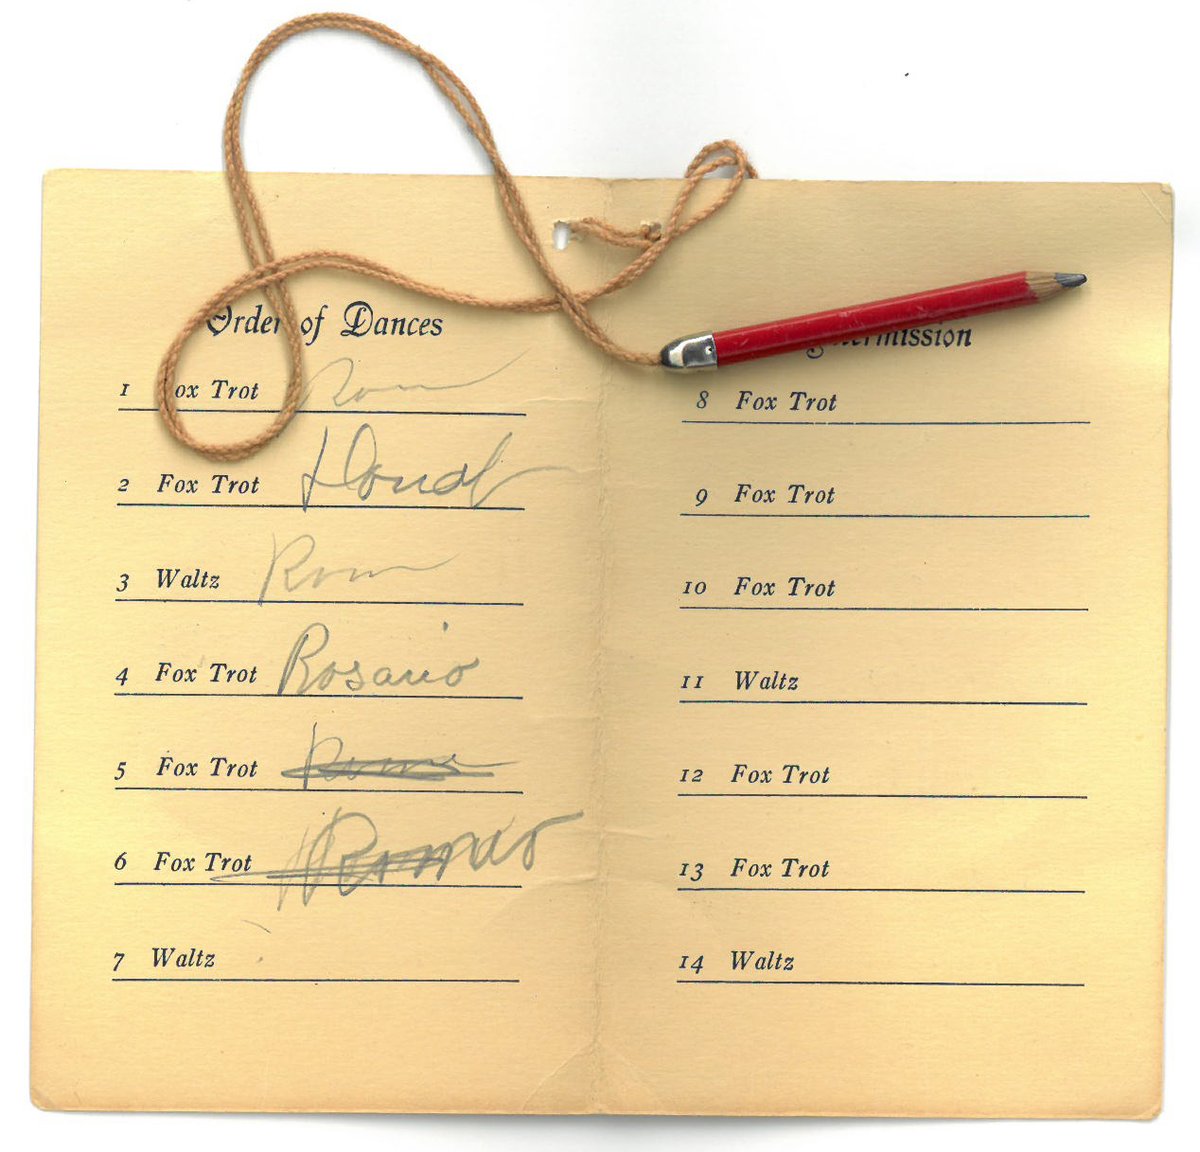 Order of Dances
1 Fox Trot
2 Fox Trot
3 Waltz
4 Fox Trot Rosario
5 Fox Trot
6 Fox Trot
7 Waltz
Intermission
8 Fox Trot
9 Fox Trot
10 Fox Trot
11 Waltz
12 Fox Trot
13 Fox Trot
14 Waltz